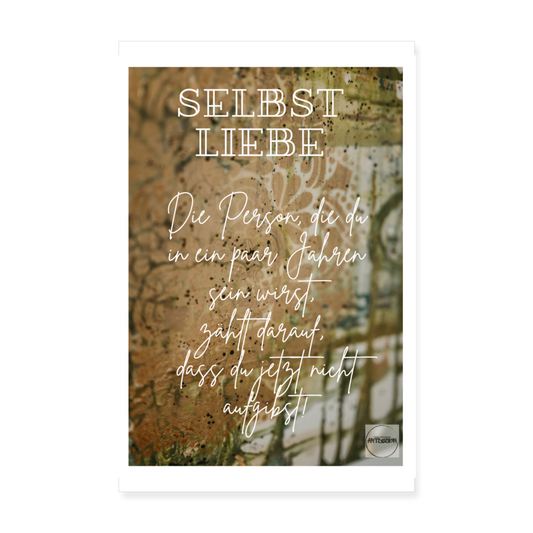 SELBST
LIEBE
Die Person, die du
in ein paar Jahren
sein wirst,
zählt darauf,
dass du jetzt nicht
aufgibst!